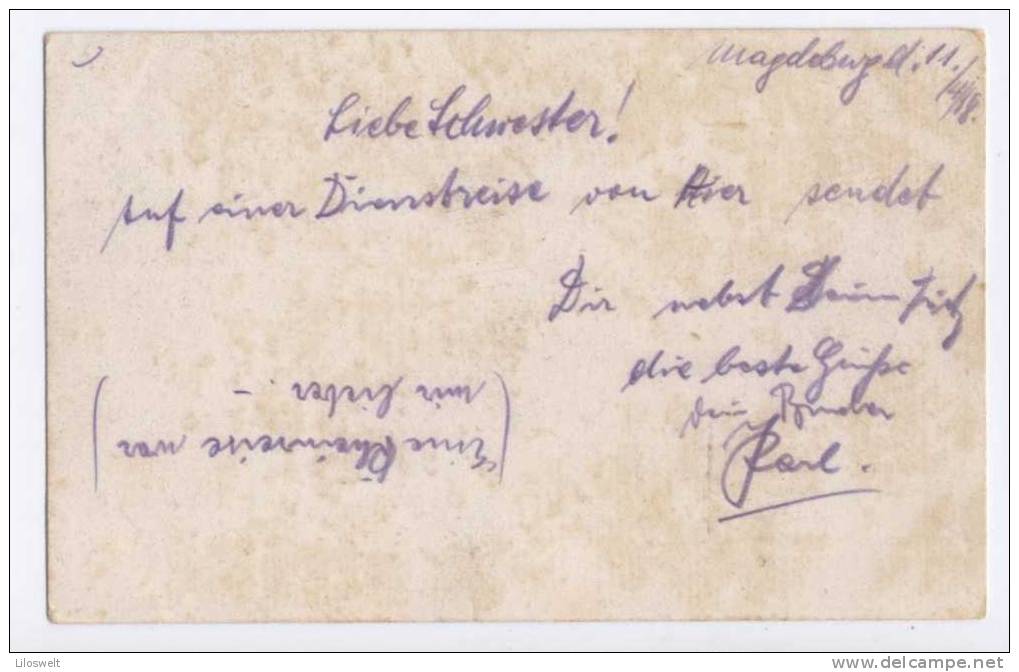 Magdeburg d. 11.
4/18.
Liebe Schwester!
Auf einer Dienstreise von Hier sendet
Dir nebst Deinem Fritz
die beste Grüße
Dein Bruder
Karl.
(Eine Rheinreise war
mir lieber. –)
Liloswelt
www.delcampe.net